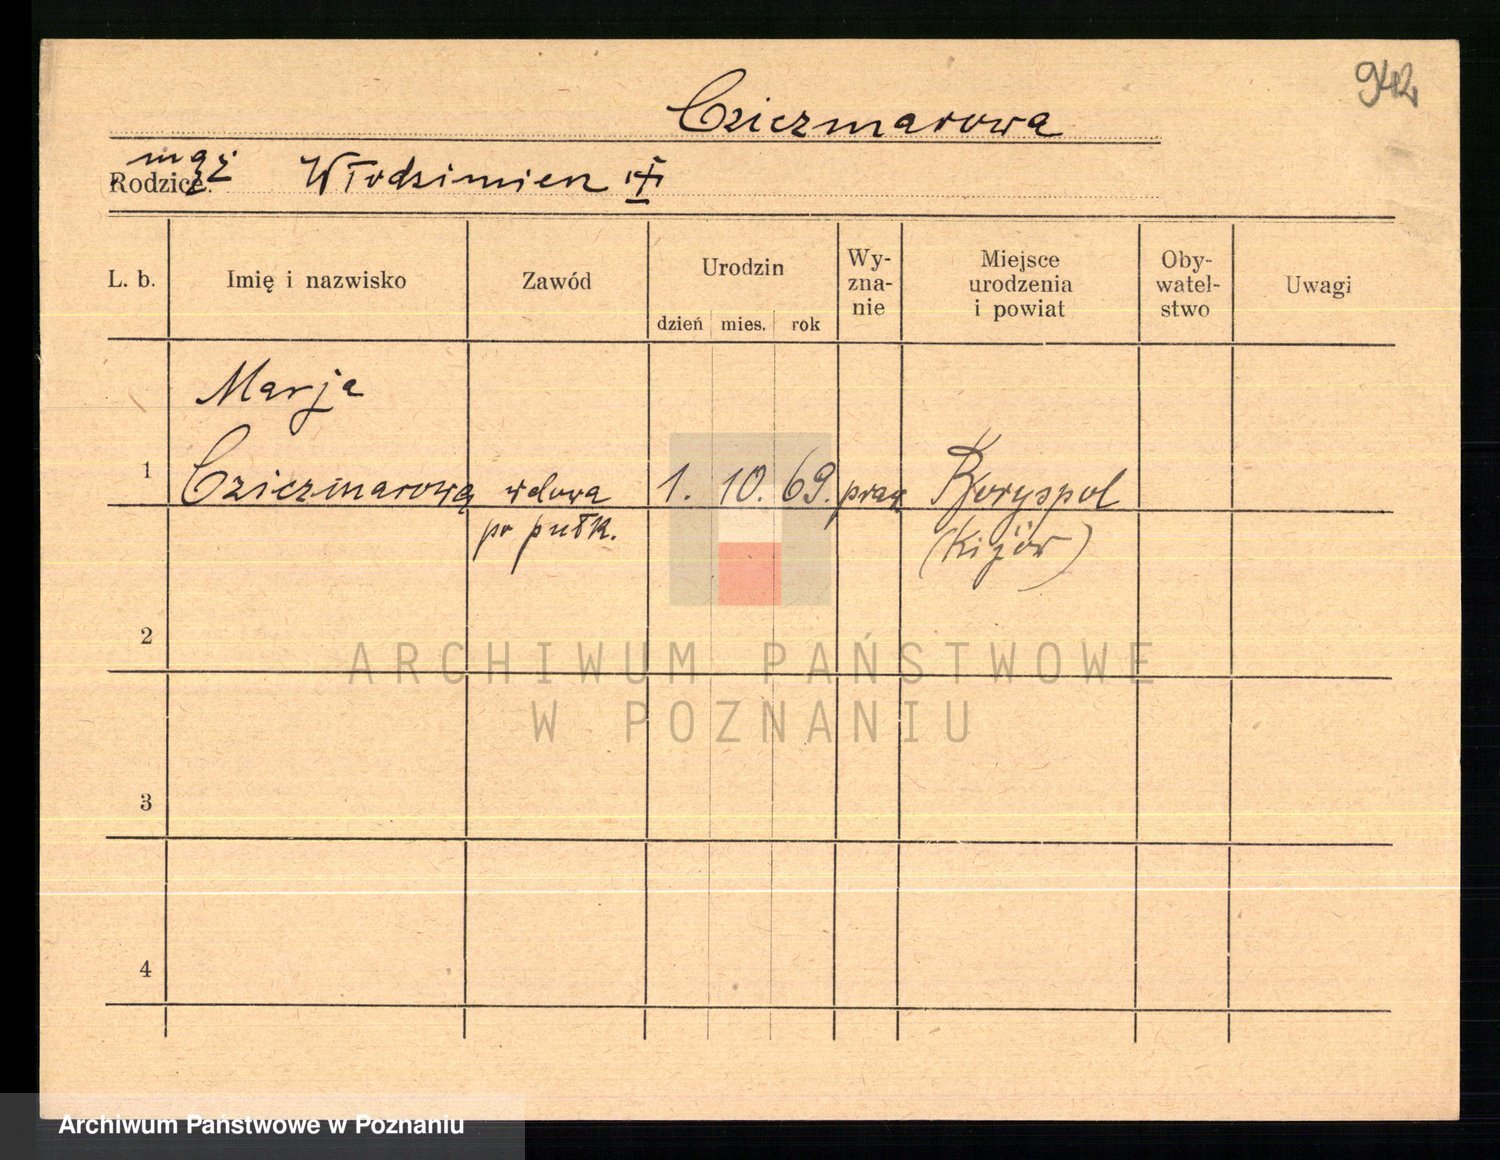 942
Cziczmarowa
mąż
Rodzice: Włodzimierz
L. b. Imię i nazwisko Zawód Urodzin Wy-zna-nie Miejsce urodzenia i powiat Oby-watel-stwo Uwagi
dzień mies. rok
Marja
1 Cziczmarowa wdowa 1. 10. 69. praw Boryspol
po pułk. (Kijów)
2
ARCHIWUM PAŃSTWOWE
W POZNANIU
3
4
Archiwum Państwowe w Poznaniu